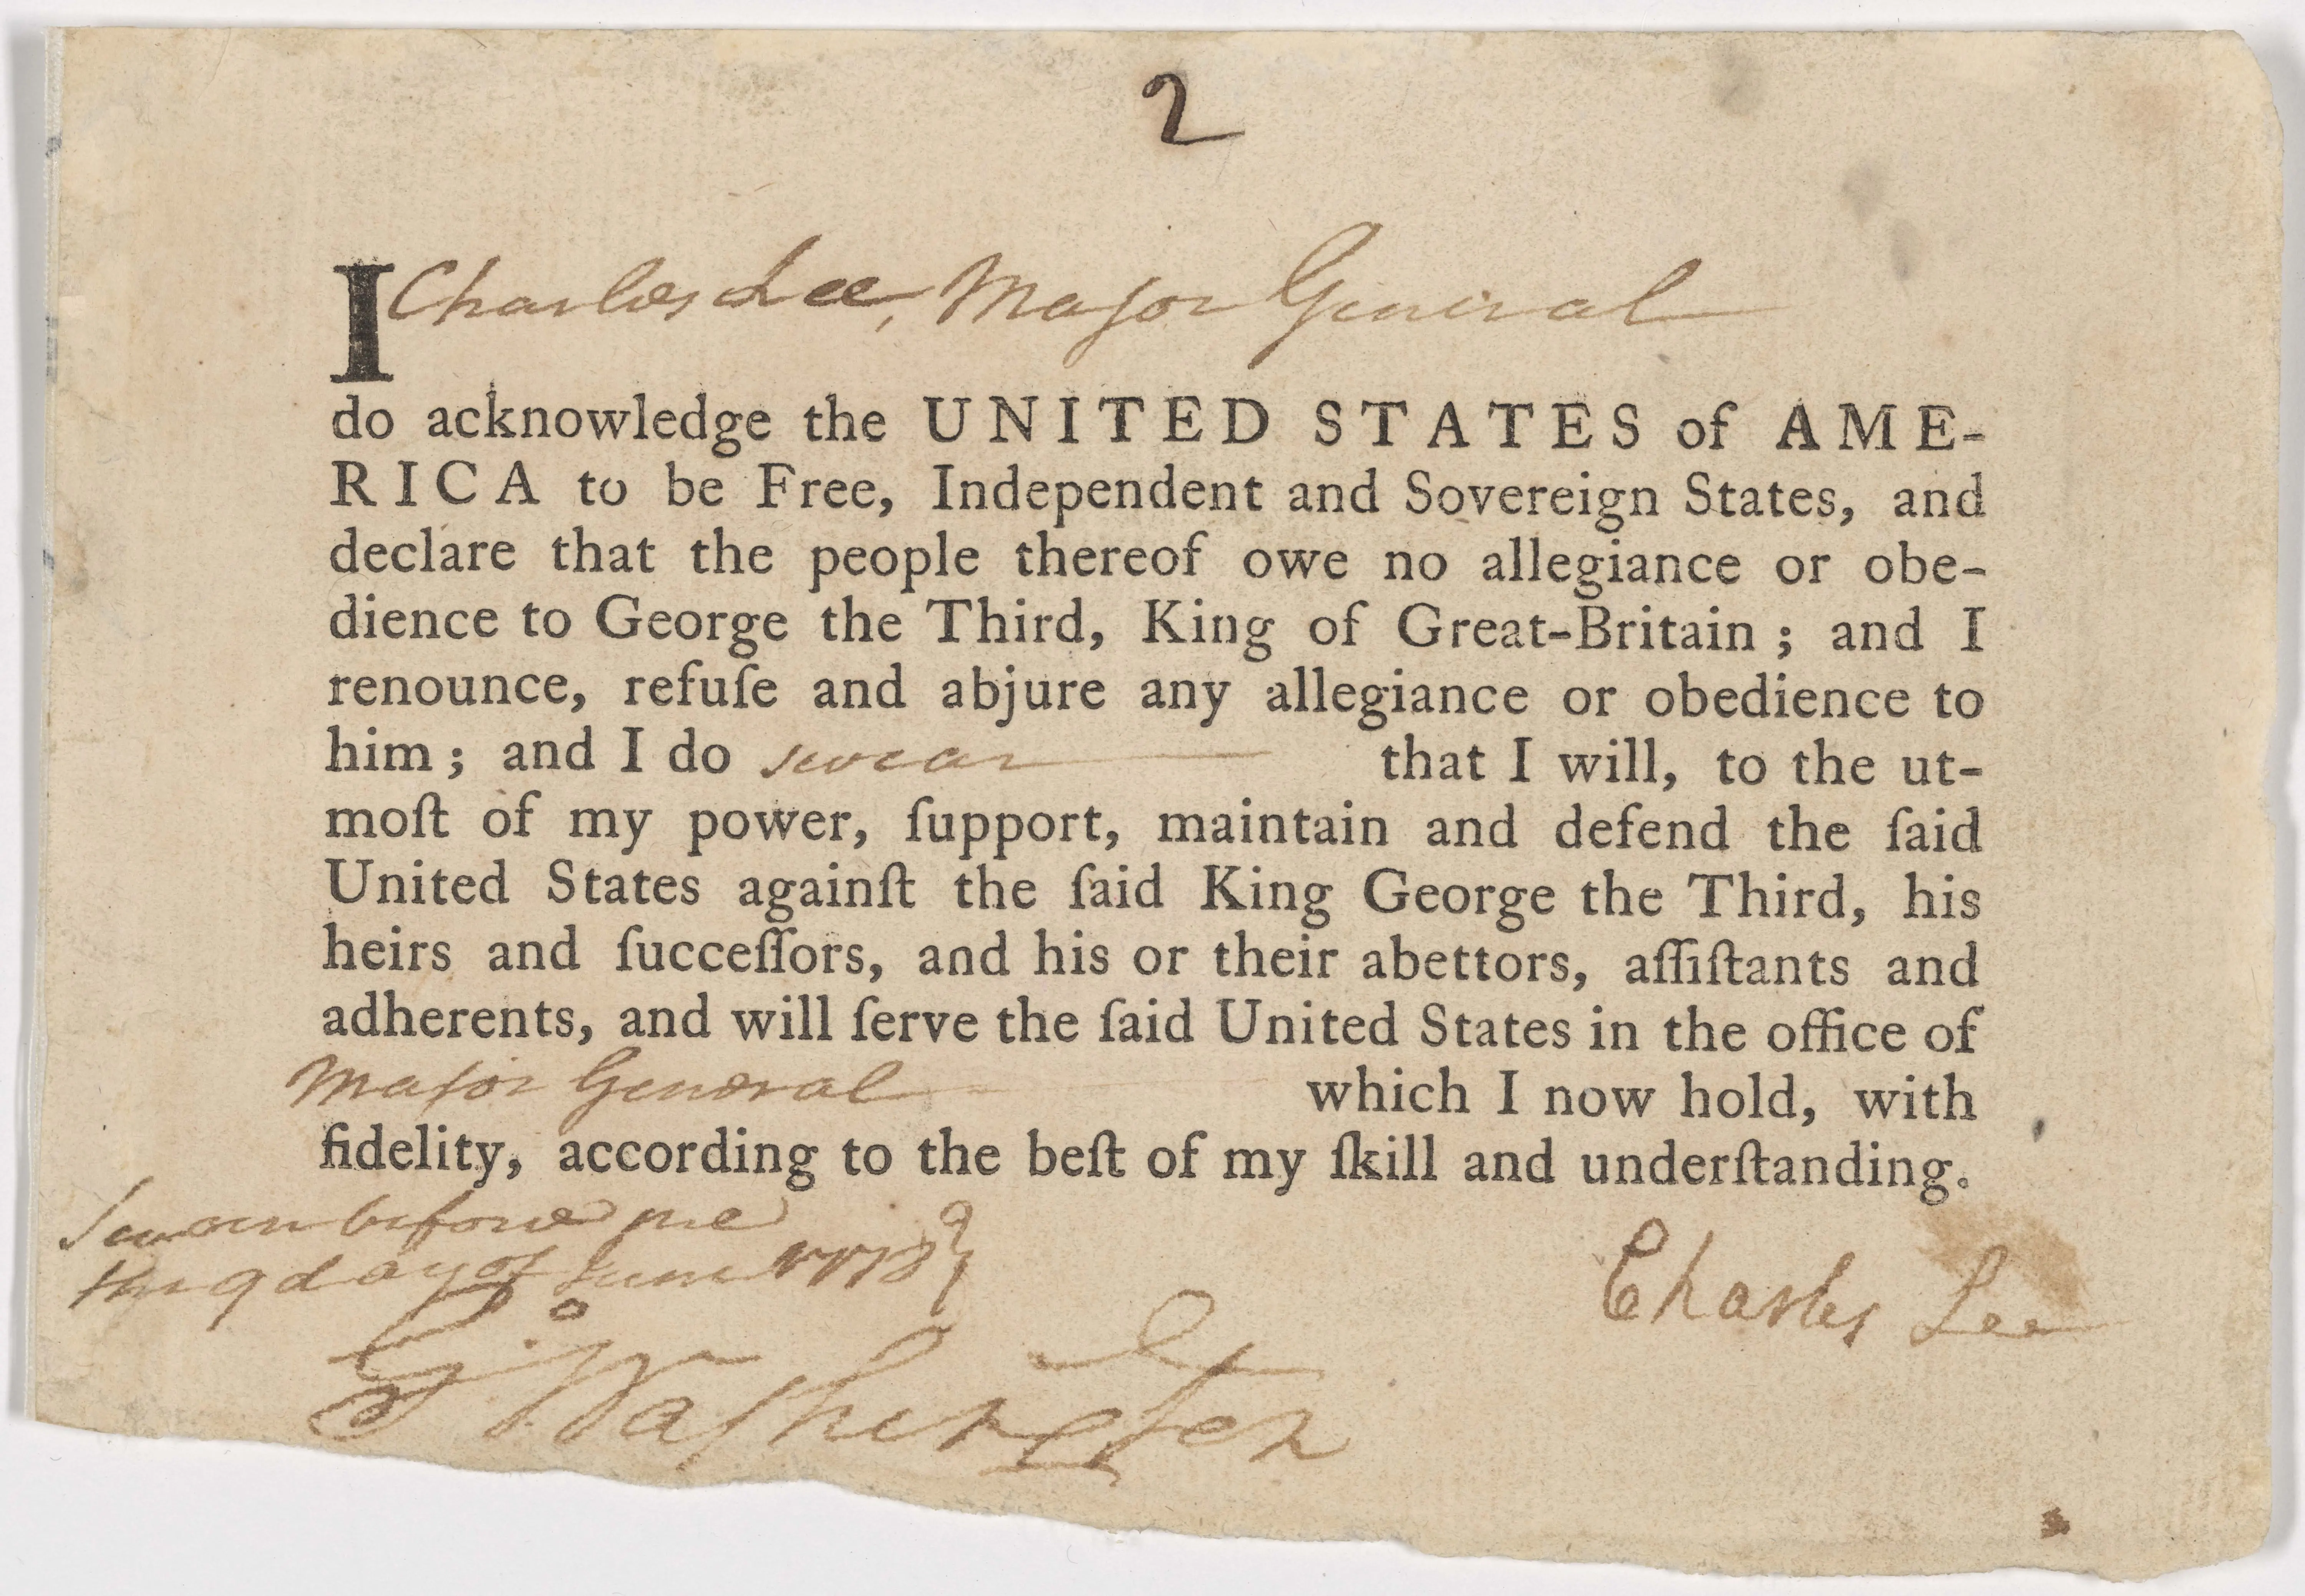 2
I Charles Lee, Major General
do acknowledge the UNITED STATES of AME-
RICA to be Free, Independent and Sovereign States, and
declare that the people thereof owe no allegiance or obe-
dience to George the Third, King of Great-Britain ; and I
renounce, refuſe and abjure any allegiance or obedience to
him ; and I do swear that I will, to the ut-
moſt of my power, ſupport, maintain and defend the ſaid
United States againſt the ſaid King George the Third, his
heirs and ſucceſſors, and his or their abettors, aſſiſtants and
adherents, and will ſerve the ſaid United States in the office of
Major General which I now hold, with
fidelity, according to the beſt of my ſkill and underſtanding.
Sworn before me
this 9 day of June 1778
Charles Lee
Go Washington